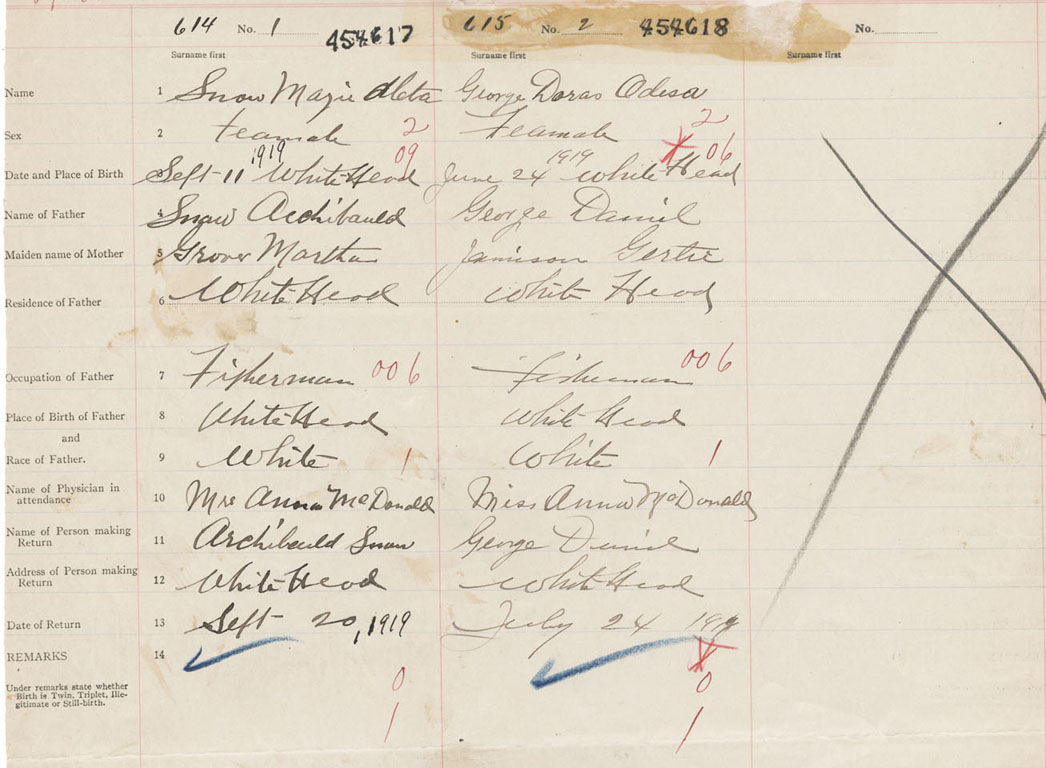 614 No. 1 454617 615 No. 2 454618 No.
Surname first Surname first Surname first
Name 1 Snow Mazie Aleta George Doras Odesa
Sex 2 Feamale 2 Feamale 2
Date and Place of Birth 3 Sept 11 1919 White Head 09 June 24 1919 White Head X 06
Name of Father 4 Snow Archibauld George Daniel
Maiden name of Mother 5 Grover Martha Jamison Gertie
Residence of Father 6 White Head White Head
Occupation of Father 7 Fisherman 006 Fisherman 006
Place of Birth of Father 8 White Head White Head
and
Race of Father. 9 White 1 White 1
Name of Physician in
attendance 10 Mrs Anna McDonald Miss Anna McDonald
Name of Person making
Return 11 Archibauld Snow George Daniel
Address of Person making
Return 12 White Head White Head
Date of Return 13 Sept 20, 1919 July 24 1919
REMARKS 14 X
Under remarks state whether
Birth is Twin, Triplet, Ille-
gitimate or Still-birth.
0 0
1 1